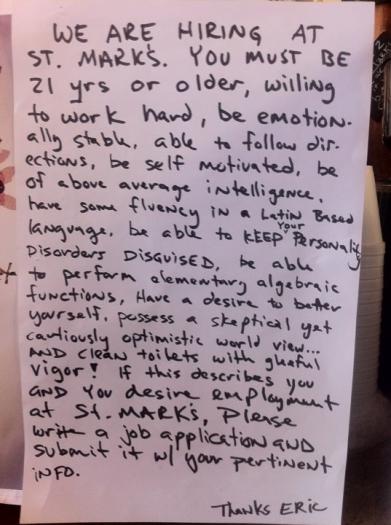 WE ARE HIRING AT
ST. MARK'S. YOU MUST BE
21 yrs or older, willing
to work hard, be emotion-
ally stable, able to follow dir-
ections, be self motivated, be
of above average intelligence,
have some fluency in a Latin Based
language, be able to KEEP Your Personality
Disorders DISGUISED, be able
to perform elementary algebraic
functions, Have a desire to better
yourself, possess a skeptical yet
cautiously optimistic world view...
AND CLEAN toilets with gleeful
vigor! If this describes you
AND You desire employment
at St. MARK'S, Please
write a job application AND
submit it w/ your pertinent
iNFO.
Thanks ERIC